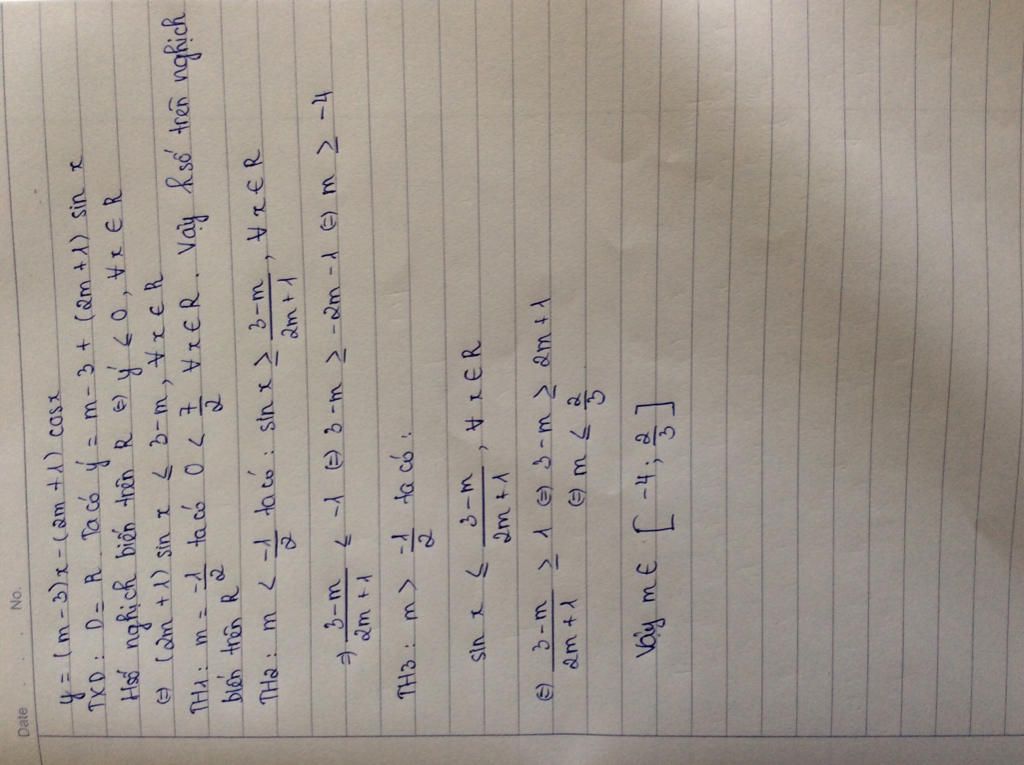 Date No.
y = (m-3)x - (2m+1) cosx
TXD: D = R. Ta có y' = m-3 + (2m+1) sin x
Hsố nghịch biến trên R ⇔ y' ≤ 0, ∀x ∈ R
⇔ (2m+1) sin x ≤ 3-m, ∀x ∈ R
TH1: m = -1/2 ta có 0 < 7/2 ∀x ∈ R. Vậy hsố trên nghịch
biến trên R
TH2: m < -1/2 ta có: sin x ≥ (3-m)/(2m+1), ∀x ∈ R
⇒ (3-m)/(2m+1) ≤ -1 ⇔ 3-m ≥ -2m-1 ⇔ m ≥ -4
TH3: m > -1/2 ta có:
sin x ≤ (3-m)/(2m+1), ∀x ∈ R
⇔ (3-m)/(2m+1) ≥ 1 ⇔ 3-m ≥ 2m+1
⇔ m ≤ 2/3
Vậy m ∈ [-4; 2/3]